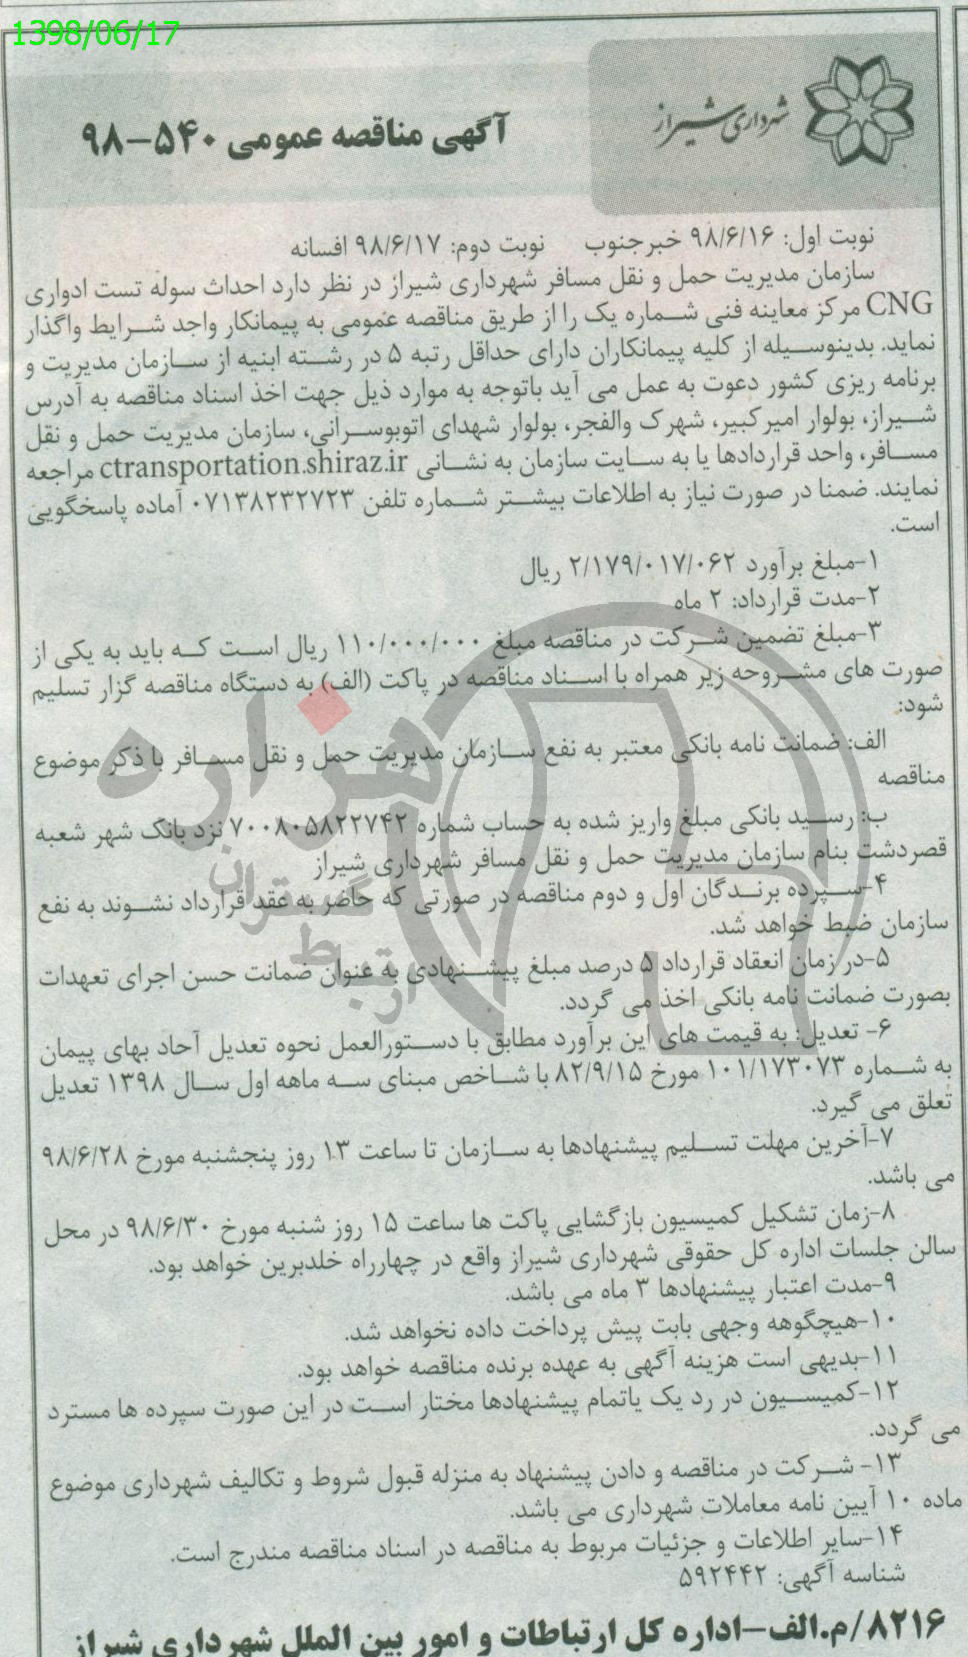 1398/06/17
شهرداری شیراز
آگهی مناقصه عمومی ۵۴۰-۹۸
نوبت اول: ۹۸/۶/۱۶ خبرجنوب نوبت دوم: ۹۸/۶/۱۷ افسانه
سازمان مدیریت حمل و نقل مسافر شهرداری شیراز در نظر دارد احداث سوله تست ادواری
CNG مرکز معاینه فنی شماره یک را از طریق مناقصه عمومی به پیمانکار واجد شرایط واگذار
نماید. بدینوسیله از کلیه پیمانکاران دارای حداقل رتبه ۵ در رشته ابنیه از سازمان مدیریت و
برنامه ریزی کشور دعوت به عمل می آید باتوجه به موارد ذیل جهت اخذ اسناد مناقصه به آدرس
شیراز، بولوار امیرکبیر، شهرک والفجر، بولوار شهدای اتوبوسرانی، سازمان مدیریت حمل و نقل
مسافر، واحد قراردادها یا به سایت سازمان به نشانی ctransportation.shiraz.ir مراجعه
نمایند. ضمنا در صورت نیاز به اطلاعات بیشتر شماره تلفن ۰۷۱۳۸۲۳۲۷۲۳ آماده پاسخگویی
است.
۱-مبلغ برآورد ۲/۱۷۹/۰۱۷/۰۶۲ ریال
۲-مدت قرارداد: ۲ ماه
۳-مبلغ تضمین شرکت در مناقصه مبلغ ۱۱۰/۰۰۰/۰۰۰ ریال است که باید به یکی از
صورت های مشروحه زیر همراه با اسناد مناقصه در پاکت (الف) به دستگاه مناقصه گزار تسلیم
شود:
الف: ضمانت نامه بانکی معتبر به نفع سازمان مدیریت حمل و نقل مسافر با ذکر موضوع
مناقصه
ب: رسید بانکی مبلغ واریز شده به حساب شماره ۷۰۰۸۰۵۸۲۲۷۴۲ نزد بانک شهر شعبه
قصردشت بنام سازمان مدیریت حمل و نقل مسافر شهرداری شیراز
۴-سپرده برندگان اول و دوم مناقصه در صورتی که حاضر به عقد قرارداد نشوند به نفع
سازمان ضبط خواهد شد.
۵-در زمان انعقاد قرارداد ۵ درصد مبلغ پیشنهادی به عنوان ضمانت حسن اجرای تعهدات
بصورت ضمانت نامه بانکی اخذ می گردد.
۶- تعدیل: به قیمت های این برآورد مطابق با دستورالعمل نحوه تعدیل آحاد بهای پیمان
به شماره ۱۰۱/۱۷۳۰۷۳ مورخ ۸۲/۹/۱۵ با شاخص مبنای سه ماهه اول سال ۱۳۹۸ تعدیل
تعلق می گیرد.
۷-آخرین مهلت تسلیم پیشنهادها به سازمان تا ساعت ۱۳ روز پنجشنبه مورخ ۹۸/۶/۲۸
می باشد.
۸-زمان تشکیل کمیسیون بازگشایی پاکت ها ساعت ۱۵ روز شنبه مورخ ۹۸/۶/۳۰ در محل
سالن جلسات اداره کل حقوقی شهرداری شیراز واقع در چهارراه خلدبرین خواهد بود.
۹-مدت اعتبار پیشنهادها ۳ ماه می باشد.
۱۰-هیچگوهه وجهی بابت پیش پرداخت داده نخواهد شد.
۱۱-بدیهی است هزینه آگهی به عهده برنده مناقصه خواهد بود.
۱۲-کمیسیون در رد یک یاتمام پیشنهادها مختار است در این صورت سپرده ها مسترد
می گردد.
۱۳- شرکت در مناقصه و دادن پیشنهاد به منزله قبول شروط و تکالیف شهرداری موضوع
ماده ۱۰ آیین نامه معاملات شهرداری می باشد.
۱۴-سایر اطلاعات و جزئیات مربوط به مناقصه در اسناد مناقصه مندرج است.
شناسه آگهی: ۵۹۲۴۴۲
۸۲۱۶/م.الف-اداره کل ارتباطات و امور بین الملل شهرداری شیراز
هزاره